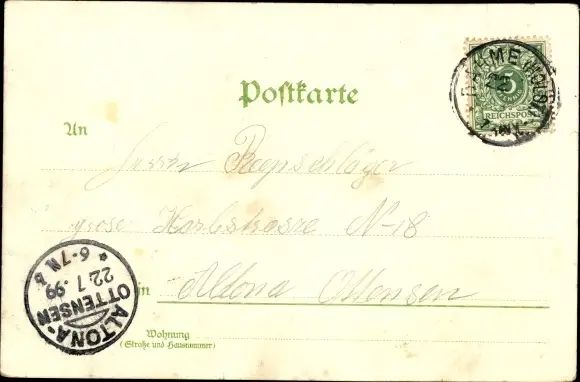 DAHME (HOLST)
22
5
PFENNIG
REICHSPOST
Postkarte
An
Herrn Rapschläger
grosse Karlstrasse N-18
in Altona Ottensen
Wohnung
(Straße und Hausnummer)
ALTONA-
OTTENSEN
22.7.99
* 6-7 N. b